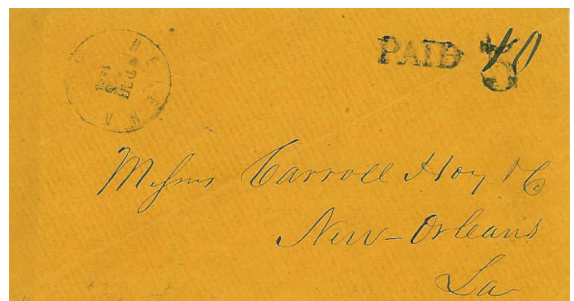 PAID 10
Messrs Carroll Hoy & Co
New-Orleans
La